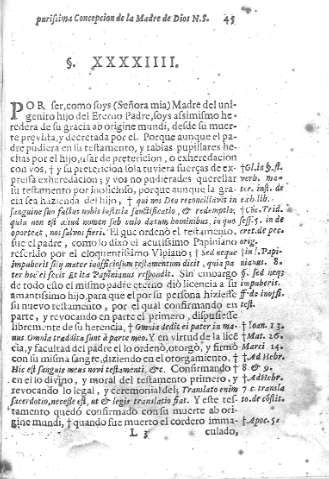 purissima Concepcion de la Madre de Dios N.S. 45
§. XXXXIIII.
POR ser, como soys (Señora mia) Madre del uni-
genito hijo del Eterno Padre, soys assimismo he-
redera de su gracia ab origine mundi, desde su muer-
te prevista, y decretada por el. Porque aunque el pa-
dre pudiera en su testamento, y tablas pupillares he-
chas por el hijo, usar de pretericion, o exheredacion
con vos, † y su pretericion sola tuviera fuerças de ex-
pressa exheredacion; y vos no pudierades querellar
su testamento por inoficioso, porque aunque la gra-
cia sea hazienda del hijo, † qui nos Deo reconciliavit in
sanguine suo factus nobis iustitia sanctificatio, & redemptio,
quia non est aliud nomen sub caelo datum hominibus, in quo
oporteat, nos salvos fieri. El que ordenò el testamento,
fue el padre, como lo dixo el acutissimo Papiniano
referido por el eloquentissimo Vlpiano: † Sed neque
impuberis filij mater inofficiosum testamentum dicit, quia pa-
ter hoc ei fecit & ita Papinianus respondit. Sin embargo
de todo esso el mismo padre eterno diò licencia a su
amantissimo hijo, para que el por su persona hiziesse
su nuevo testamento, por el qual confirmando en
parte, y revocando en parte el primero, dispusiesse
libremente de su herencia, † Omnia dedit ei pater in ma-
nus Omnia tradita sunt à patre meo. Y en virtud de la lice
cia, y facultad del padre el lo ordenò, otorgò, y firmò
con su misma sangre, diziendo en el otorgamiento. †
Hic est sanguis meus novi testamenti, &c. Confirmando †
en ello divino, y moral del testamento primero, y
revocando lo legal, y ceremonial del; Translato enim
sacerdotio, necesse est, ut & legis translatio fiat. Y este tes-
tamento quedò confirmado con su muerte ab ori-
gine mundi, † quando fue muerto el cordero imma-
L 3 culado,
† Gl. in §. si.
verb. ma-
ter. inst. de
exh. lib.
† Cōc. Trid.
sess. 5. in de
cret. de pec.
orig.
† in l. Papi-
nianus. 8.
§. sed neq;
impuberis.
ff. de inoffi.
test.
† Ioan. 13.
Mat. 26.
Marci 14.
† Ad Hebr.
8 & 9.
† Ad Hebr.
7 c. transla
to. de cōstit.
† Apoc. 5.